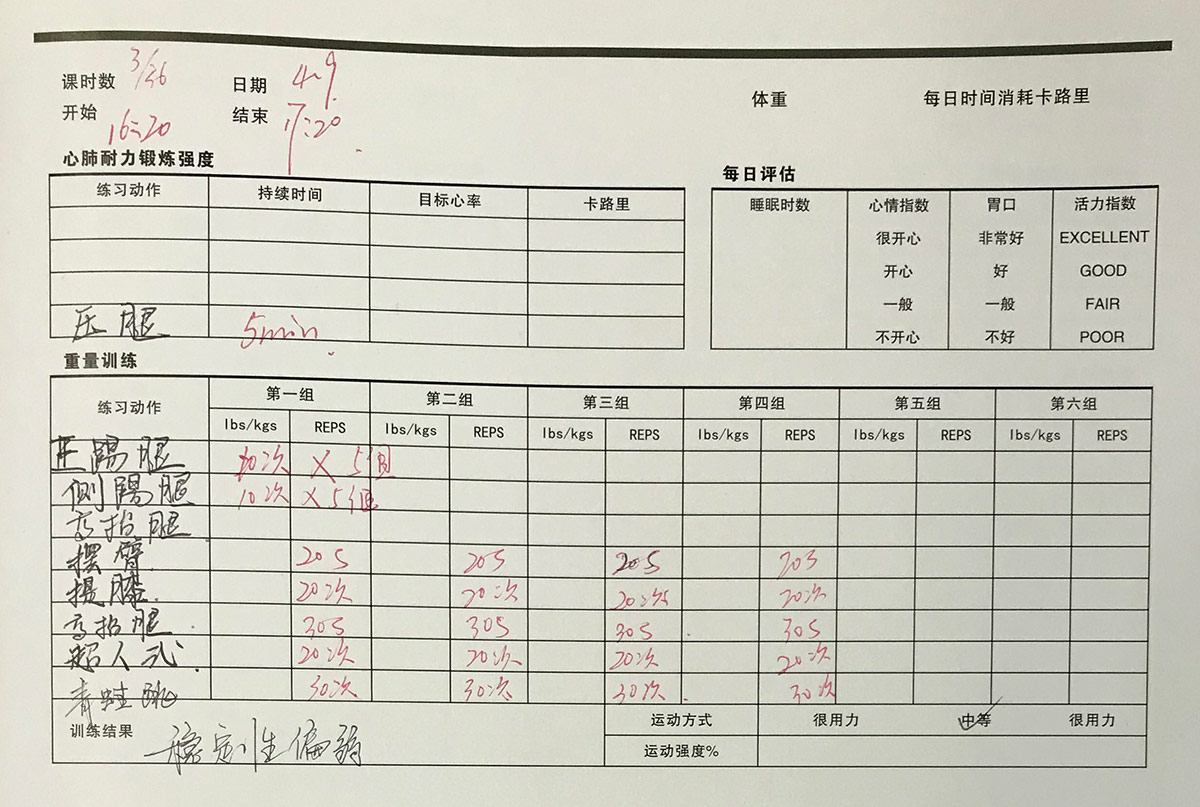 课时数 3/36 日期 4-9. 体重 每日时间消耗卡路里
开始 16:20 结束 17:20
心肺耐力锻炼强度
练习动作 持续时间 目标心率 卡路里
压腿 5min.
每日评估
睡眠时数 心情指数 胃口 活力指数
很开心 非常好 EXCELLENT
开心 好 GOOD
一般 一般 FAIR
不开心 不好 POOR
重量训练
练习动作 第一组 第二组 第三组 第四组 第五组 第六组
lbs/kgs REPS lbs/kgs REPS lbs/kgs REPS lbs/kgs REPS lbs/kgs REPS lbs/kgs REPS
正踢腿 10次 × 5组
侧踢腿 10次 × 5组
高抬腿
摆臂 20S 20S 20S 20S
提膝 20次 20次 20次 20次
高抬腿 30S 30S 30S 30S
超人式 20次 20次 20次 20次
青蛙跳 30次 30次 30次 30次
训练结果 稳定性偏弱 运动方式 很用力 中等 很用力
运动强度%